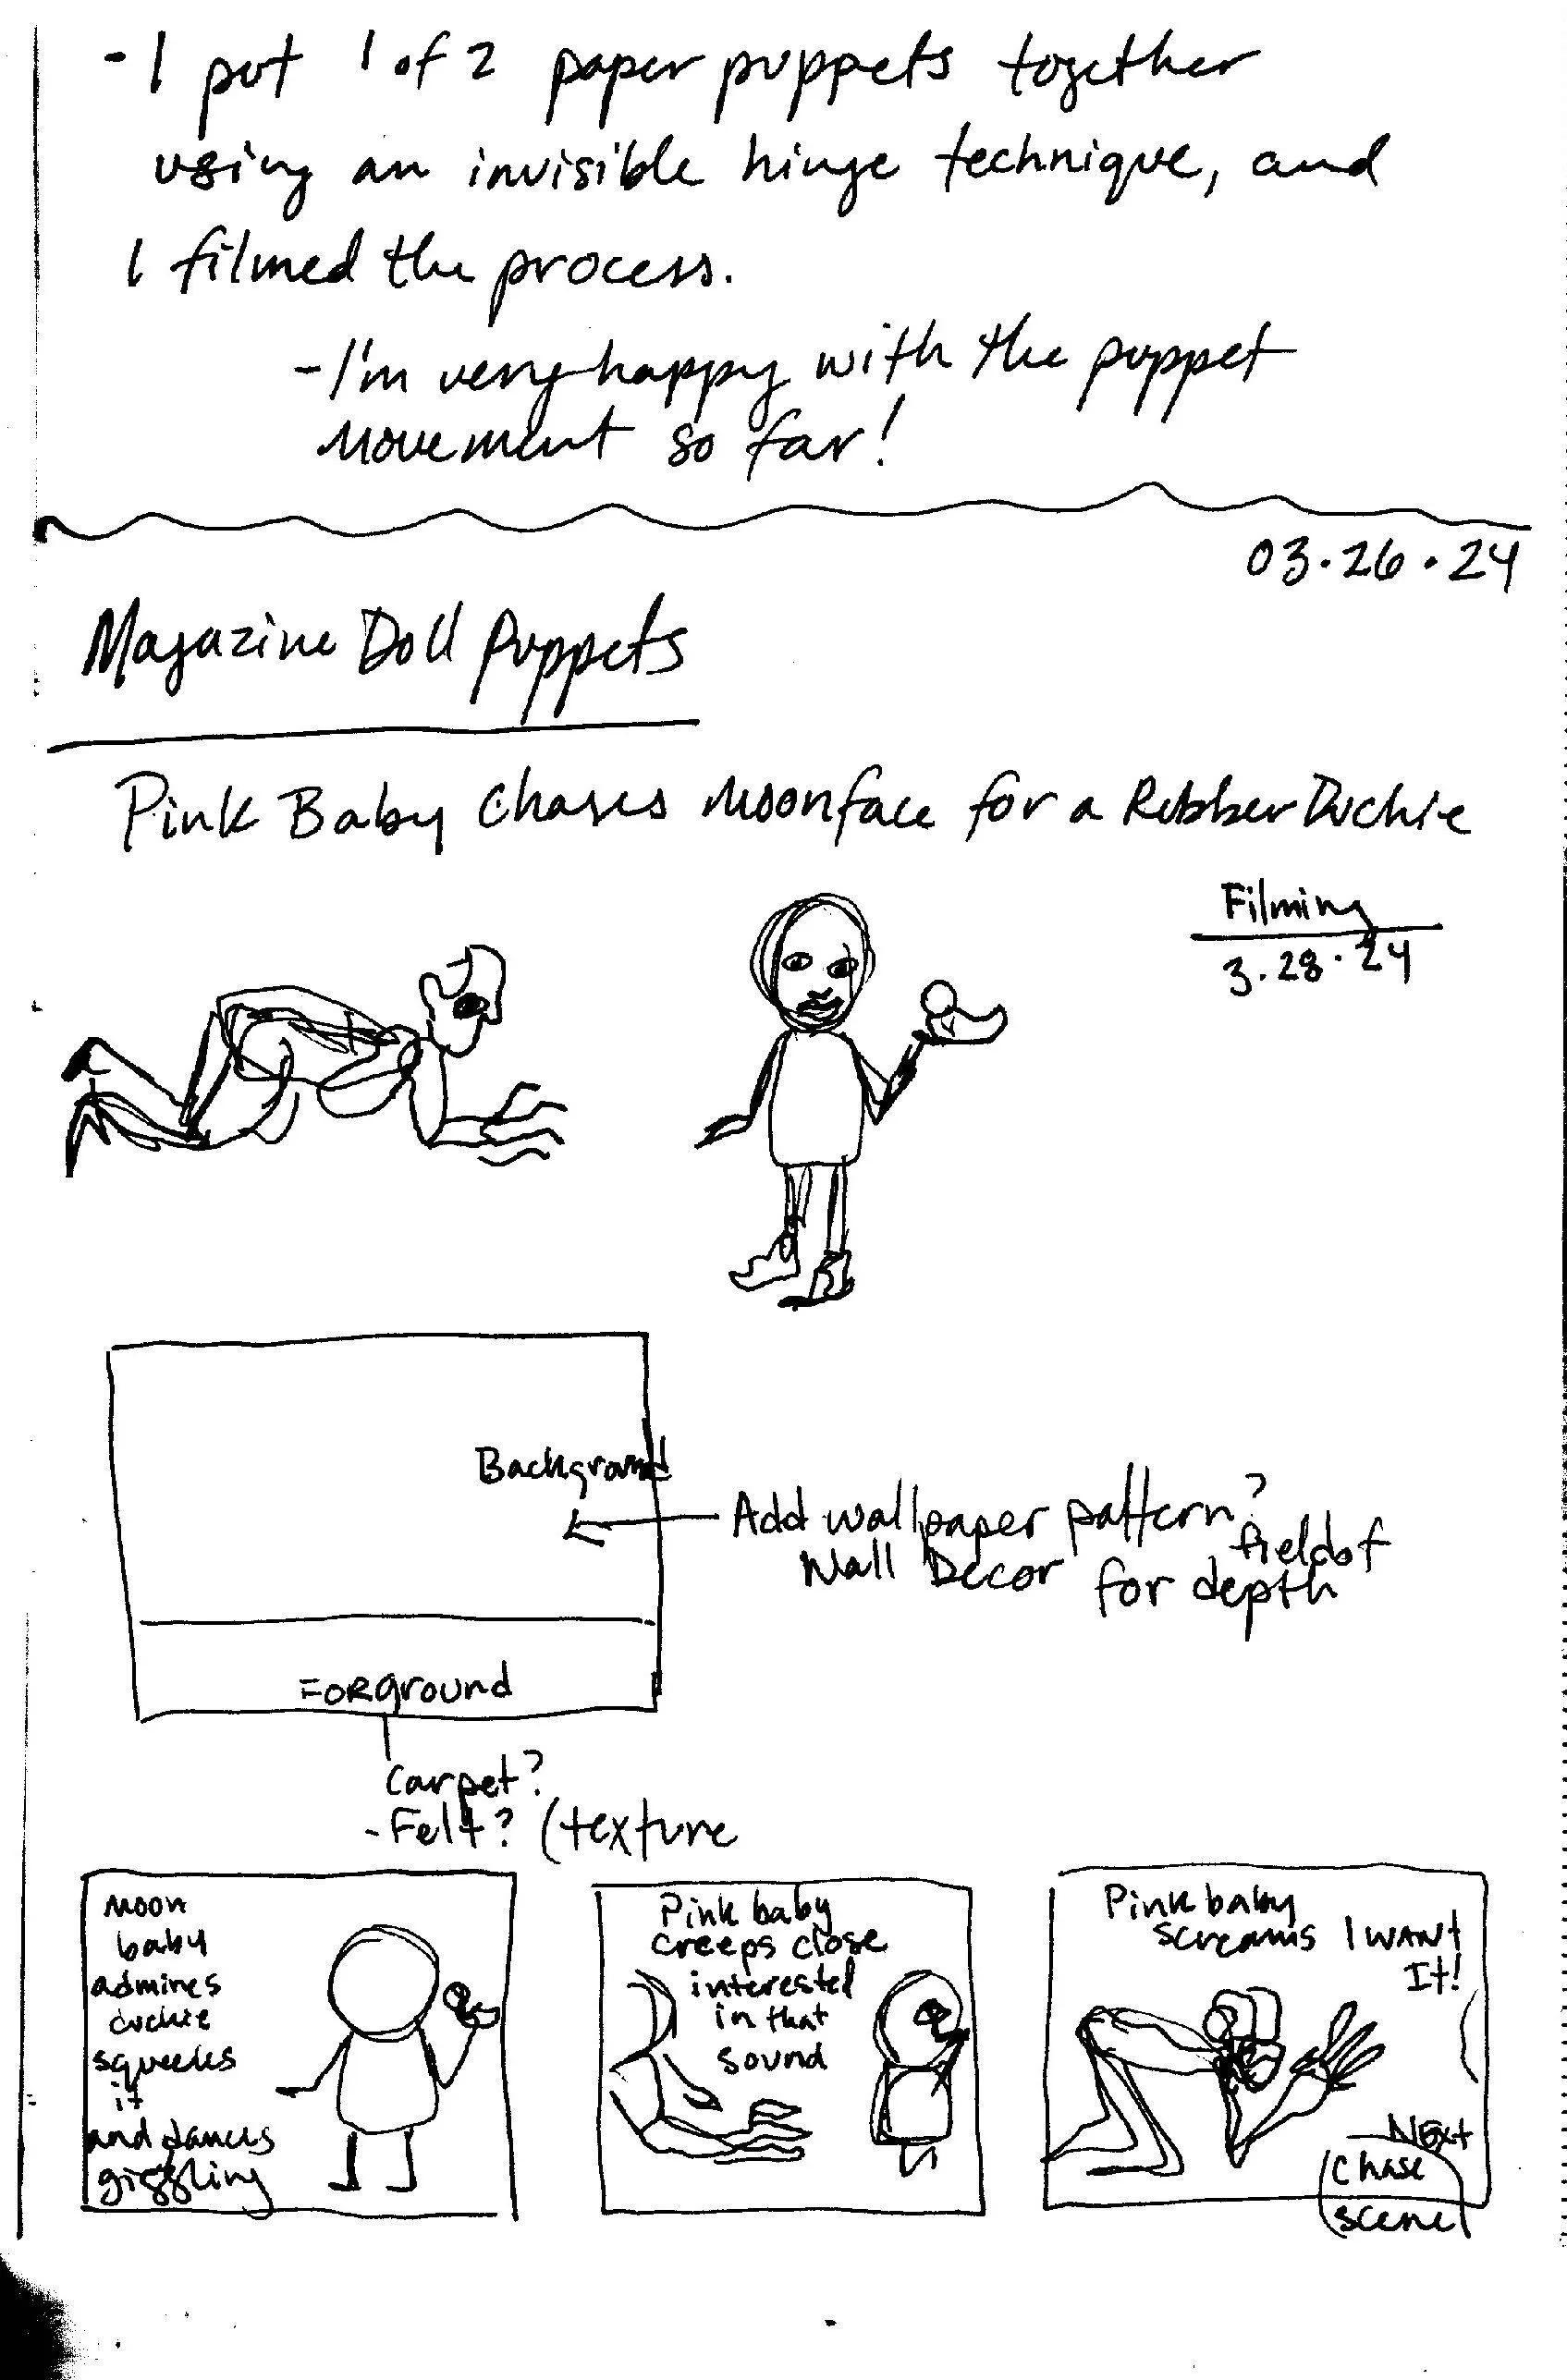 - I put 1 of 2 paper puppets together
using an invisible hinge technique, and
I filmed the process.
- I'm very happy with the puppet
movement so far!
03.26.24
Magazine Doll Puppets
Pink Baby Chases Moonface for a Rubber Duckie
Filming
3.28.24
Background
Add wallpaper pattern?
Wall Decor for field of
depth
Forground
Carpet?
- Felt? (texture
Moon
baby
admires
duckie
squeeks
it
and dances
giggling
Pink baby
creeps close
interested
in that
sound
Pink baby
screams I WANT
It!
Next
Chase
scene